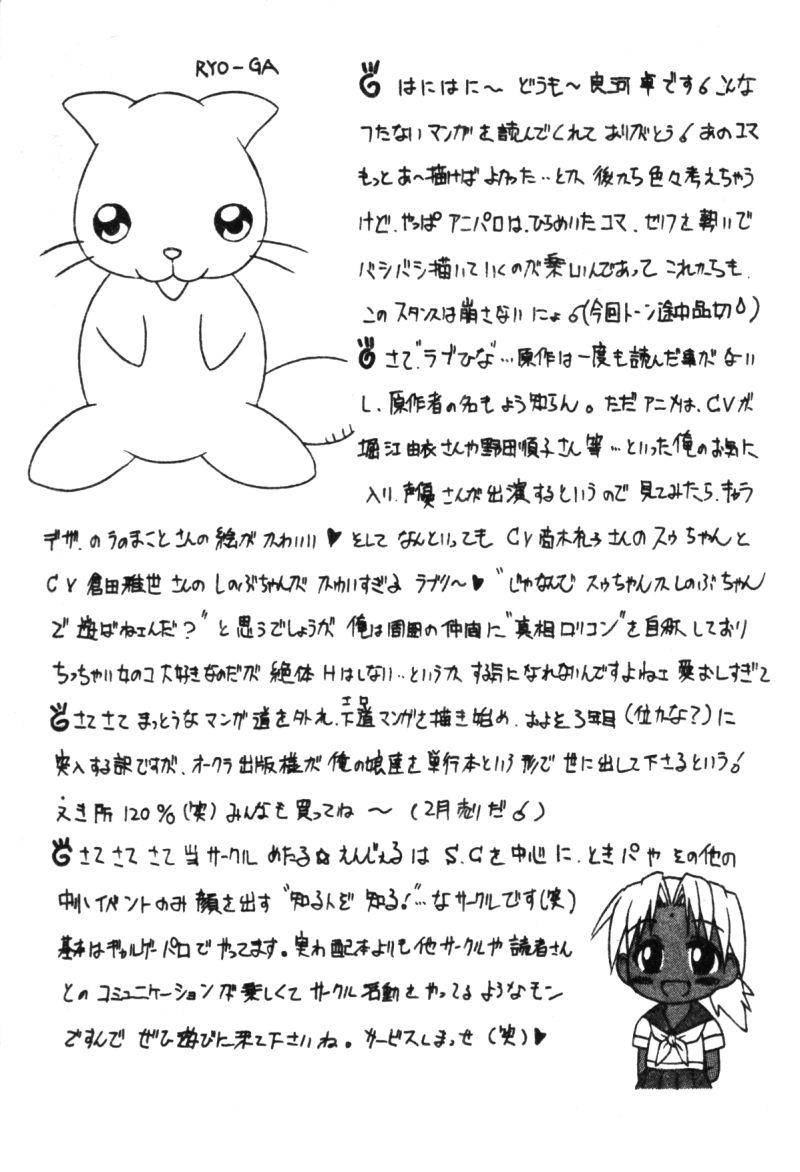 RYO-GA
はにはに〜 どうも〜 良河卓です こんな
つたないマンガを読んでくれて ありがとう あのコマ
もっとあ〜描けば よかった…とか 後から色々考えちゃう
けど、やっぱアニパロは、ひらめいたコマ、セリフを勢いで
バシバシ描いていくのが楽しいんであって これからも、
このスタンスは崩さないにょ(今回トーン途中品切)
さて、ラブひな…原作は一度も読んだ事がない
し、原作者の名もよう知らん。ただアニメは、CVが
堀江由衣さんや野田順子さん等…といった俺のお気に
入り、声優さんが出演するというので見てみたら、キャラ
デザ、のうのまことさんの絵がかわいい♥そしてなんといっても CV高木礼子さんのスゥちゃんと
CV倉田雅世さんのしのぶちゃんがかわいすぎるラブリ〜♥“じゃなんでスゥちゃんかしのぶちゃん
で遊ばねェんだ?”と思うでしょうが 俺は周囲の仲間に“真相ロリコン”を自称しており
ちっちゃい女のコ大好きなのだが 絶体Hはしない…というか、する気になれないんですよねェ 愛おしすぎて
さてさて まっとうなマンガ道を外れ、下道エロマンガを描き始め、およそ3年目(位かな?)に
突入する訳ですが、オークラ出版様が俺の娘達を単行本という形で世に出して下さるという
所120%(笑)みんなも買ってね〜(2月売りだ)
さてさてさて当サークルめたる☆えんじぇるは S.Cを中心に、ときパやその他の
中小イベントのみ顔を出す“知る人ぞ知る!”…なサークルです(笑)
基本はギャルゲーパロでやってます。実わ配本よりも他サークルや読者さん
とのコミュニケーションが楽しくてサークル活動をやってるようなモン
ですんで ぜひ遊びに来て下さいね。サービスしまっせ(笑)♥